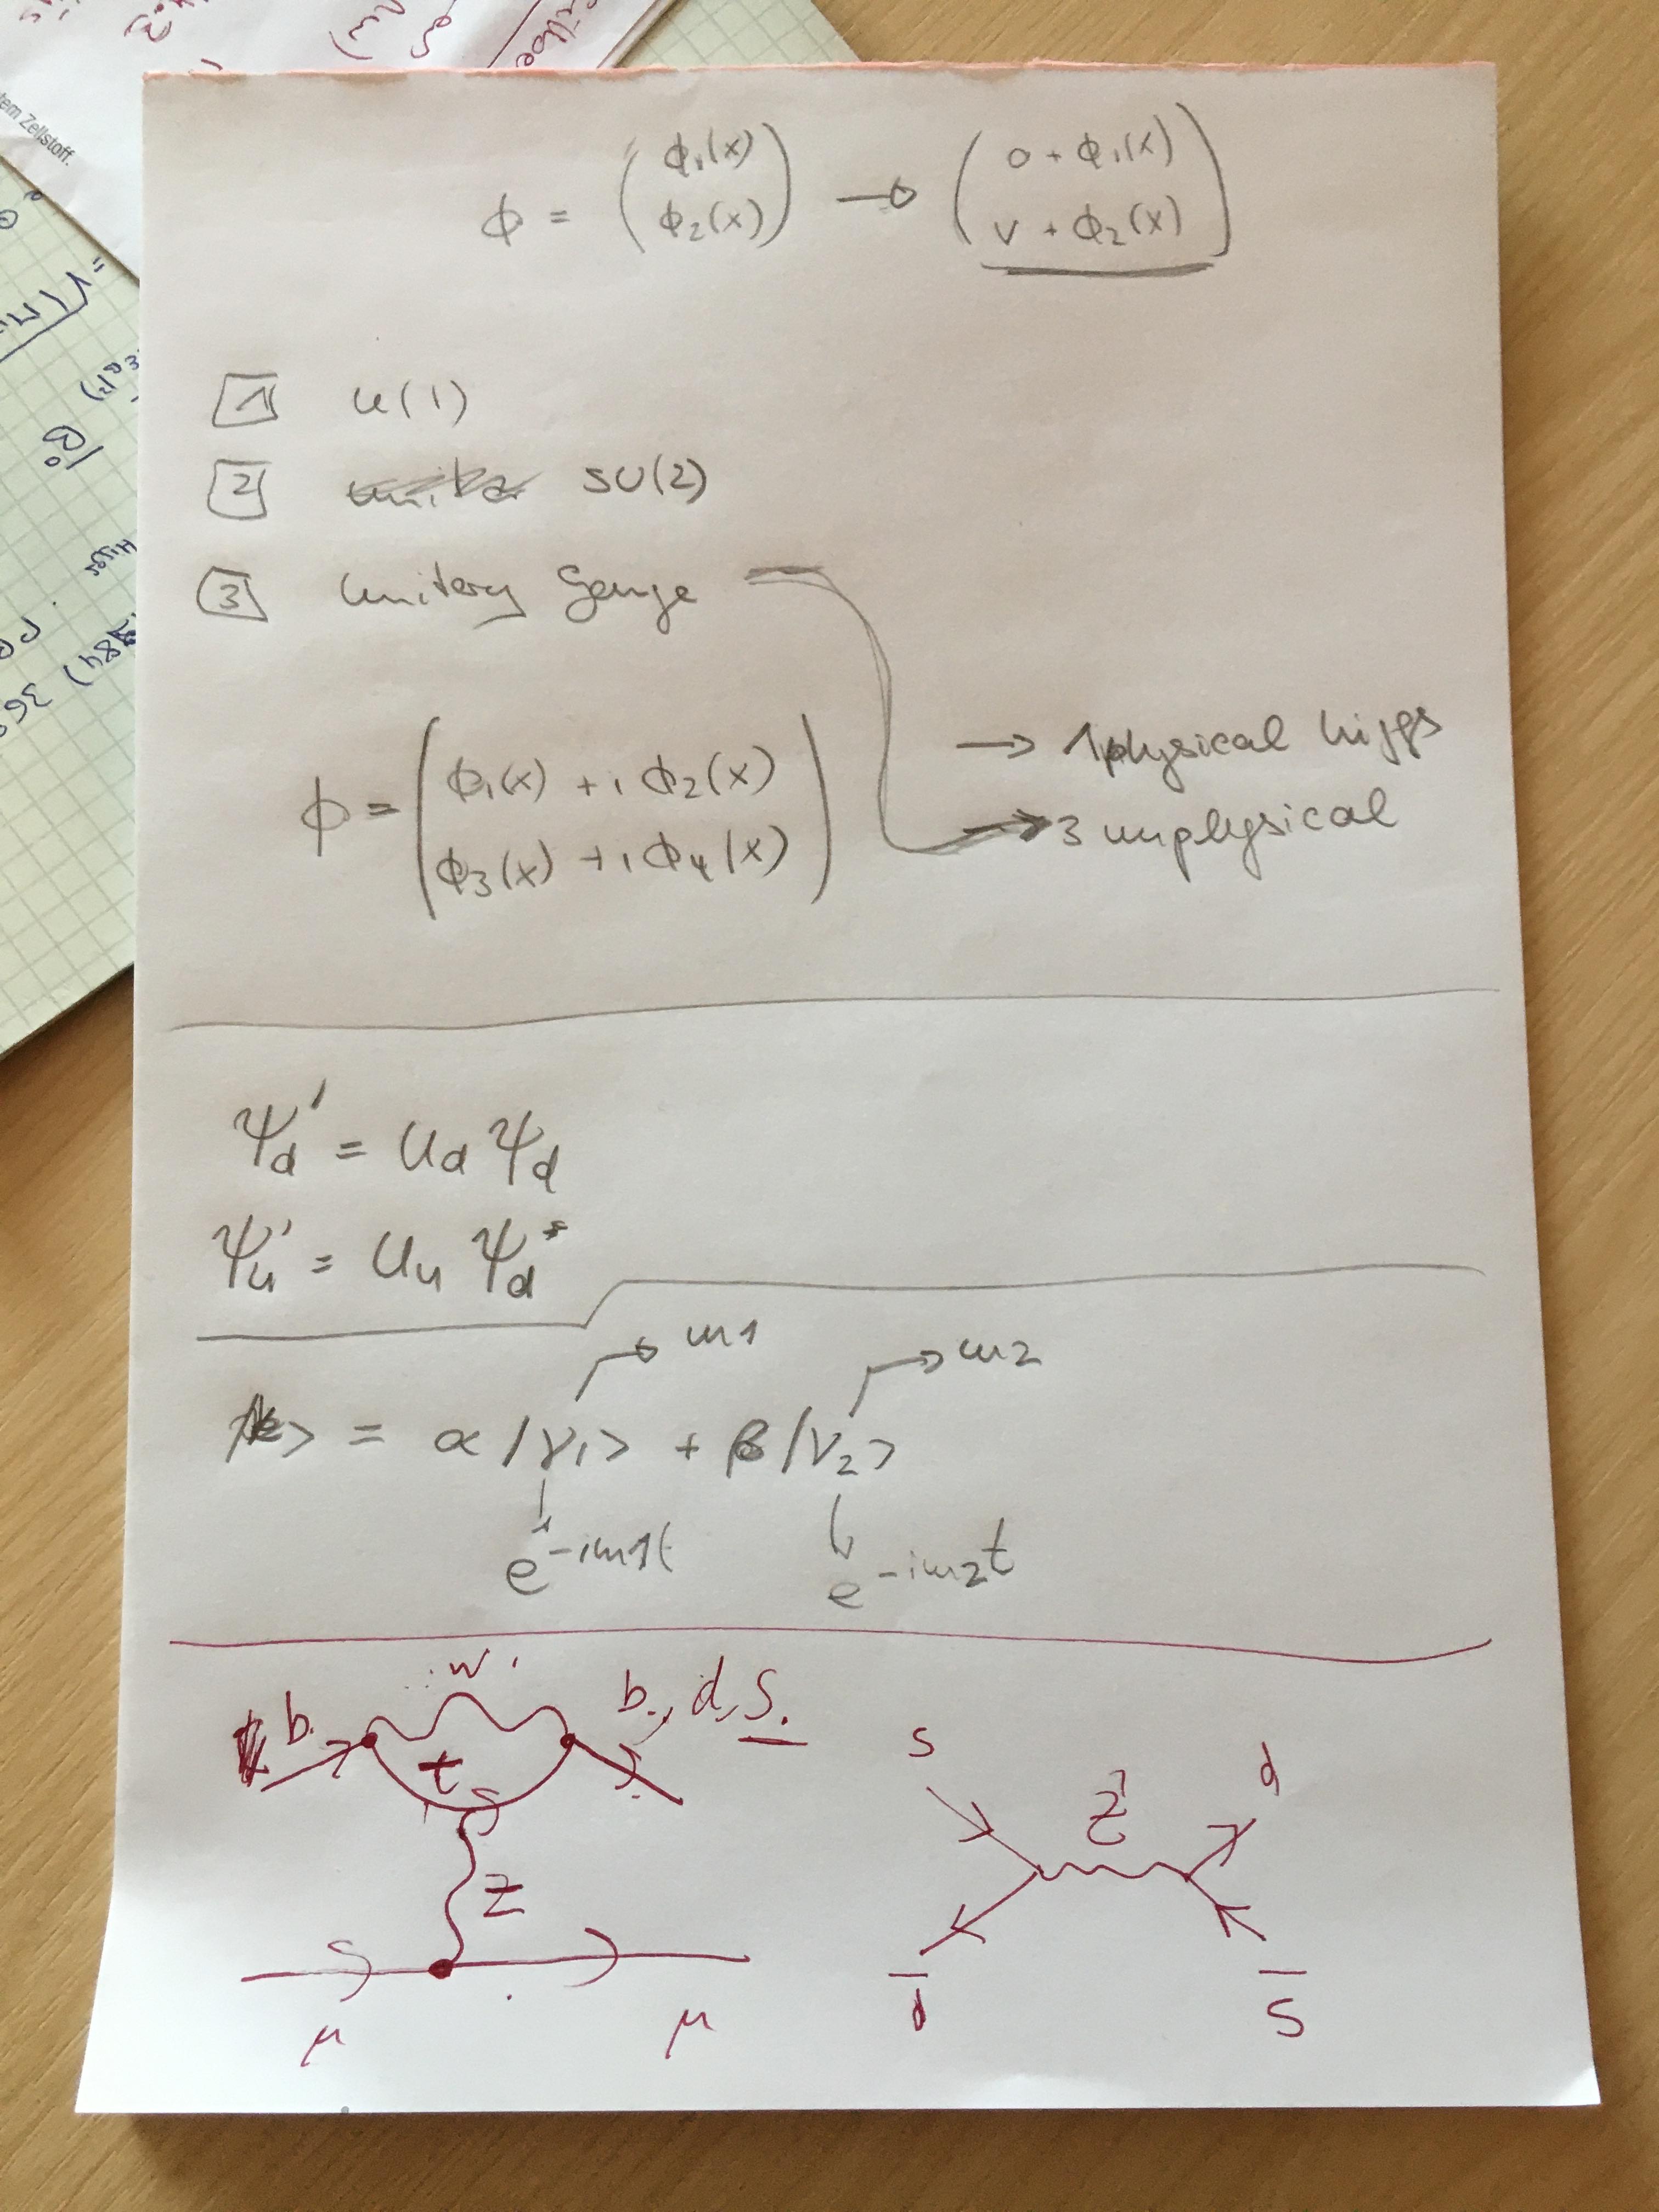 tem Zellstoff.
ϕ = (ϕ₁(x) ϕ₂(x)) → (0 + ϕ₁(x) v + ϕ₂(x))
1 U(1)
2 SU(2)
3 Unitary Gauge
ϕ = (ϕ₁(x) + i ϕ₂(x) ϕ₃(x) + i ϕ₄(x))
→ 1 physical higgs
→ 3 unphysical
ψ_d' = U_d ψ_d
ψ_u' = U_u ψ_d
→ m1 → m2
> = α |ν₁> + β |ν₂>
e^{-im1t} e^{-im2t}
W
b b, d, s
t
Z
μ μ
s Z' d
d̅ s̅